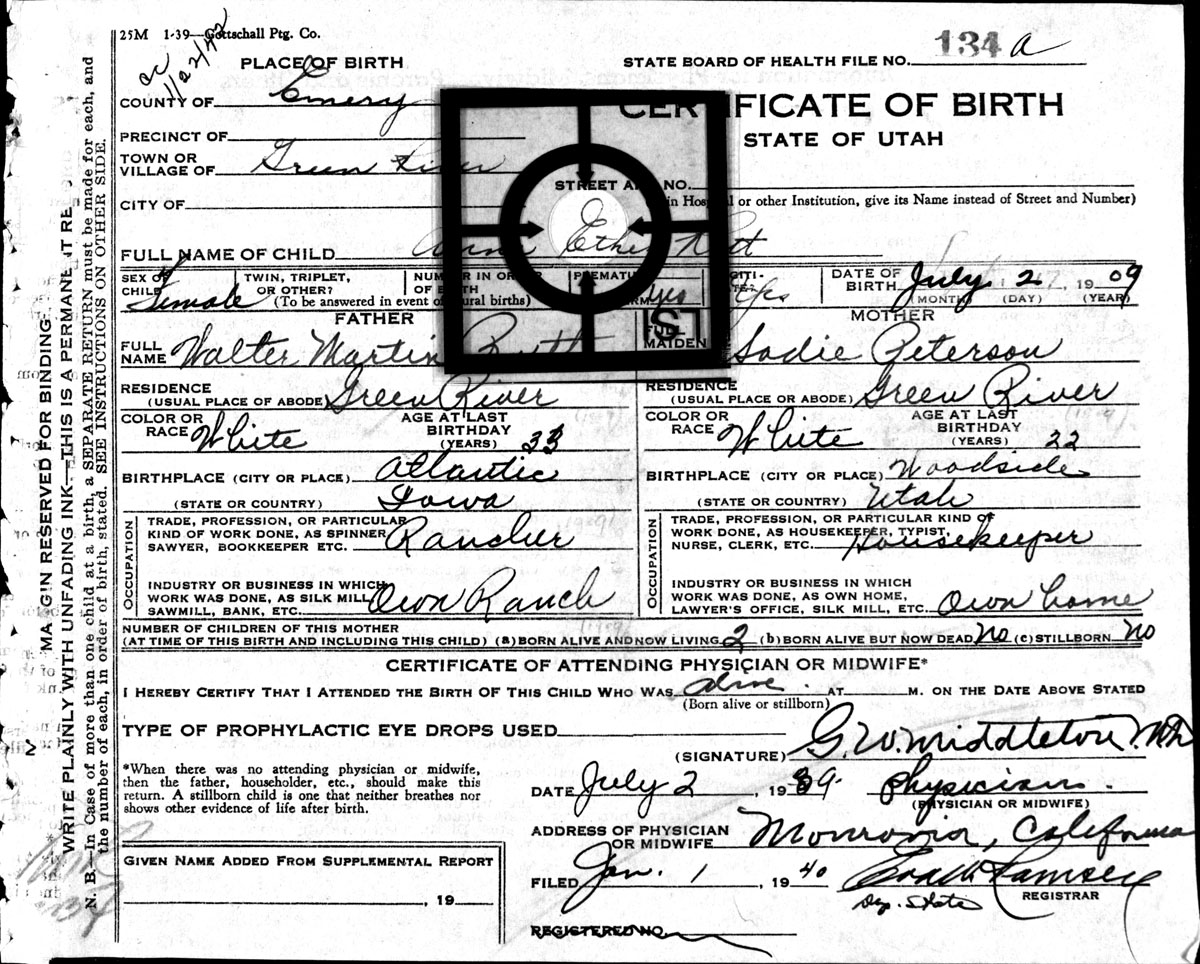 25M 1-39—Gottschall Ptg. Co.
1/22/42
PLACE OF BIRTH
STATE BOARD OF HEALTH FILE NO. 134 a
COUNTY OF Emery
CERTIFICATE OF BIRTH
STATE OF UTAH
PRECINCT OF
TOWN OR VILLAGE OF Green River
STREET AND NO.
CITY OF
in Hospital or other Institution, give its Name instead of Street and Number)
FULL NAME OF CHILD Anna Ethel
SEX OF CHILD Female
TWIN, TRIPLET, OR OTHER?
NUMBER IN ORDER OF BIRTH
(To be answered in event of plural births)
PREMATURE
yes
Yes
DATE OF BIRTH July 2, 1909
(MONTH) (DAY) (YEAR)
FATHER
MOTHER
FULL NAME Walter Martin
FULL MAIDEN Sadie Peterson
RESIDENCE (USUAL PLACE OF ABODE) Green River
RESIDENCE (USUAL PLACE OR ABODE) Green River
COLOR OR RACE White
AGE AT LAST BIRTHDAY (YEARS) 33
COLOR OR RACE White
AGE AT LAST BIRTHDAY (YEARS) 22
BIRTHPLACE (CITY OR PLACE) Atlantic
(STATE OR COUNTRY) Iowa
BIRTHPLACE (CITY OR PLACE) Woodside
(STATE OR COUNTRY) Utah
OCCUPATION
TRADE, PROFESSION, OR PARTICULAR
KIND OF WORK DONE, AS SPINNER
SAWYER, BOOKKEEPER ETC. Rancher
INDUSTRY OR BUSINESS IN WHICH
WORK WAS DONE, AS SILK MILL
SAWMILL, BANK, ETC. Own Ranch
OCCUPATION
TRADE, PROFESSION, OR PARTICULAR KIND OF
WORK DONE, AS HOUSEKEEPER, TYPIST,
NURSE, CLERK, ETC. Housekeeper
INDUSTRY OR BUSINESS IN WHICH
WORK WAS DONE, AS OWN HOME,
LAWYER'S OFFICE, SILK MILL, ETC. Own home
NUMBER OF CHILDREN OF THIS MOTHER
(AT TIME OF THIS BIRTH AND INCLUDING THIS CHILD) (a) BORN ALIVE AND NOW LIVING 2 (b) BORN ALIVE BUT NOW DEAD No (c) STILLBORN No
CERTIFICATE OF ATTENDING PHYSICIAN OR MIDWIFE*
I HEREBY CERTIFY THAT I ATTENDED THE BIRTH OF THIS CHILD WHO WAS alive AT M. ON THE DATE ABOVE STATED
(Born alive or stillborn)
TYPE OF PROPHYLACTIC EYE DROPS USED
(SIGNATURE) G. W. Middleton M.D.
*When there was no attending physician or midwife,
then the father, householder, etc., should make this
return. A stillborn child is one that neither breathes nor
shows other evidence of life after birth.
DATE July 2, 1939. Physician.
(PHYSICIAN OR MIDWIFE)
ADDRESS OF PHYSICIAN OR MIDWIFE Monrovia, California
GIVEN NAME ADDED FROM SUPPLEMENTAL REPORT
, 19
FILED Jan. 1, 1940
Ramsey
REGISTRAR
Dep. State
REGISTERED NO.
MARGIN RESERVED FOR BINDING
WRITE PLAINLY WITH UNFADING INK—THIS IS A PERMANENT RE
N. B.—In Case of more than one child at a birth, a SEPARATE RETURN must be made for each, and
the number of each, in order of birth, stated. SEE INSTRUCTIONS ON OTHER SIDE.